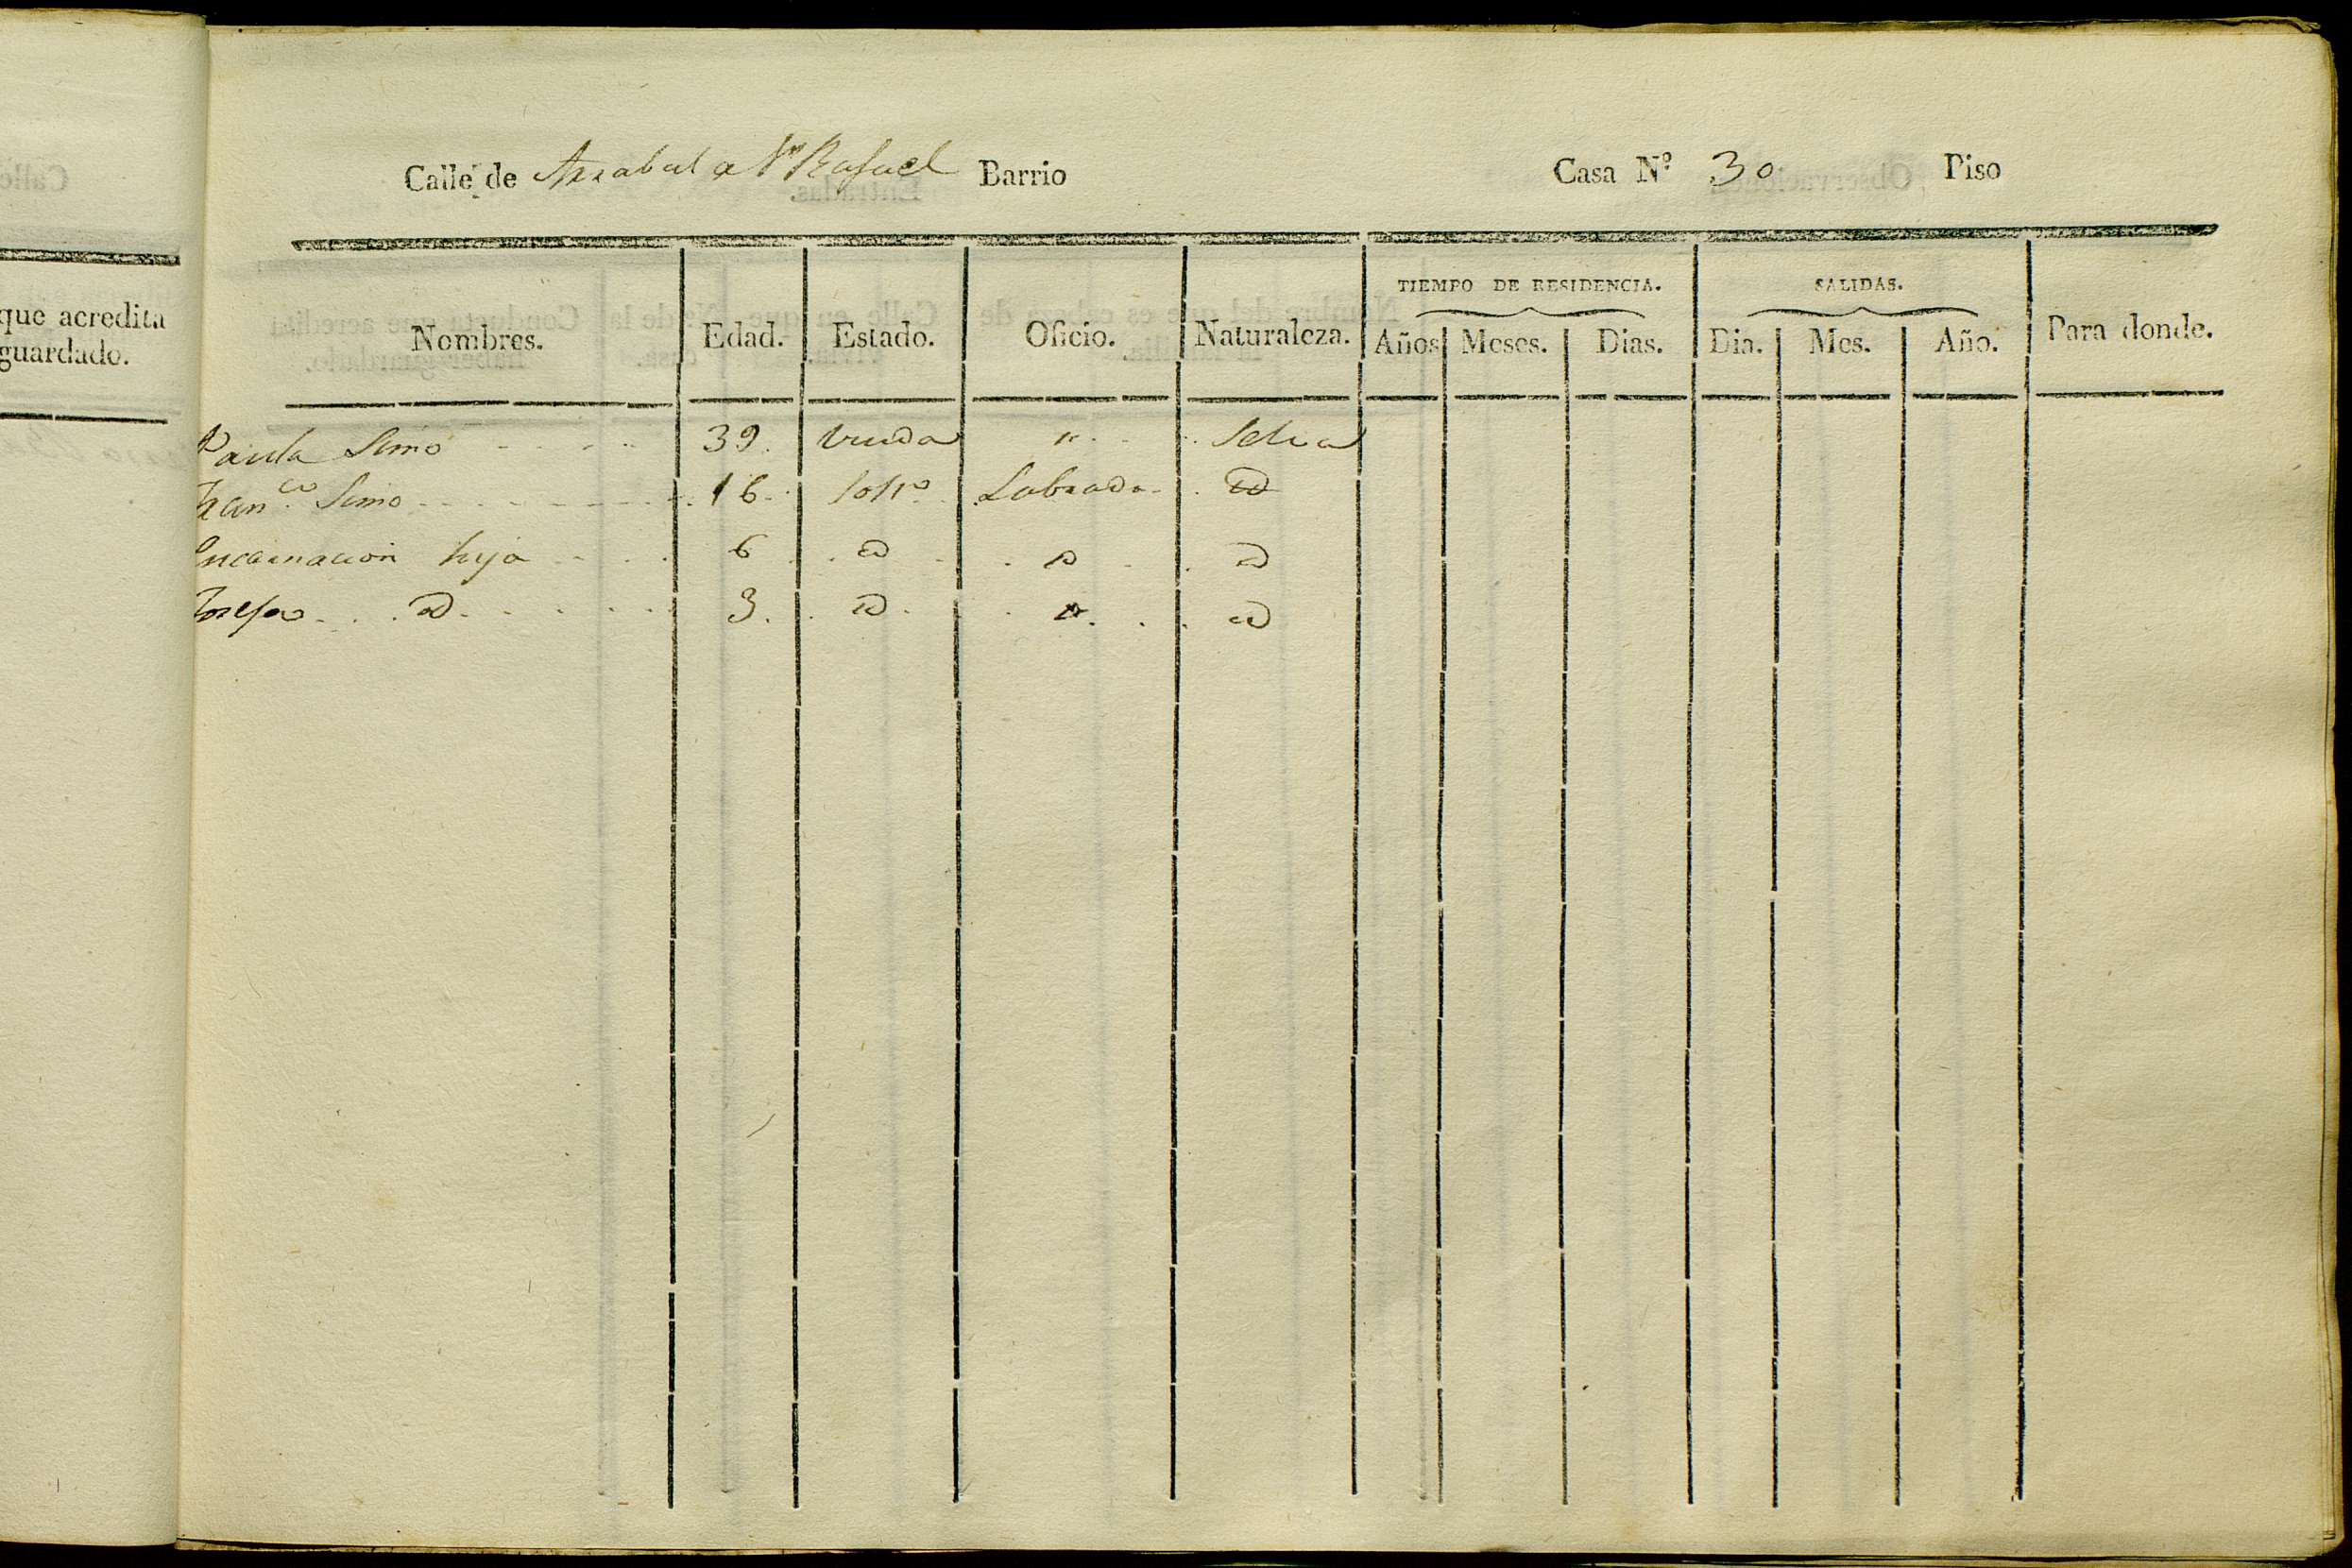 que acredita
guardado.
Calle de Arrabal a Sn Rafael Barrio Casa N.º 30 Piso
Nombres. Edad. Estado. Oficio. Naturaleza. TIEMPO DE RESIDENCIA. SALIDAS. Para donde.
Años Meses. Dias. Dia. Mes. Año.
Paula Simó 39. Viuda " Selva
Franco Simo 16 Soltro Labrador id
Encarnacion hija 6 id " id
Josefa id 3. id " id